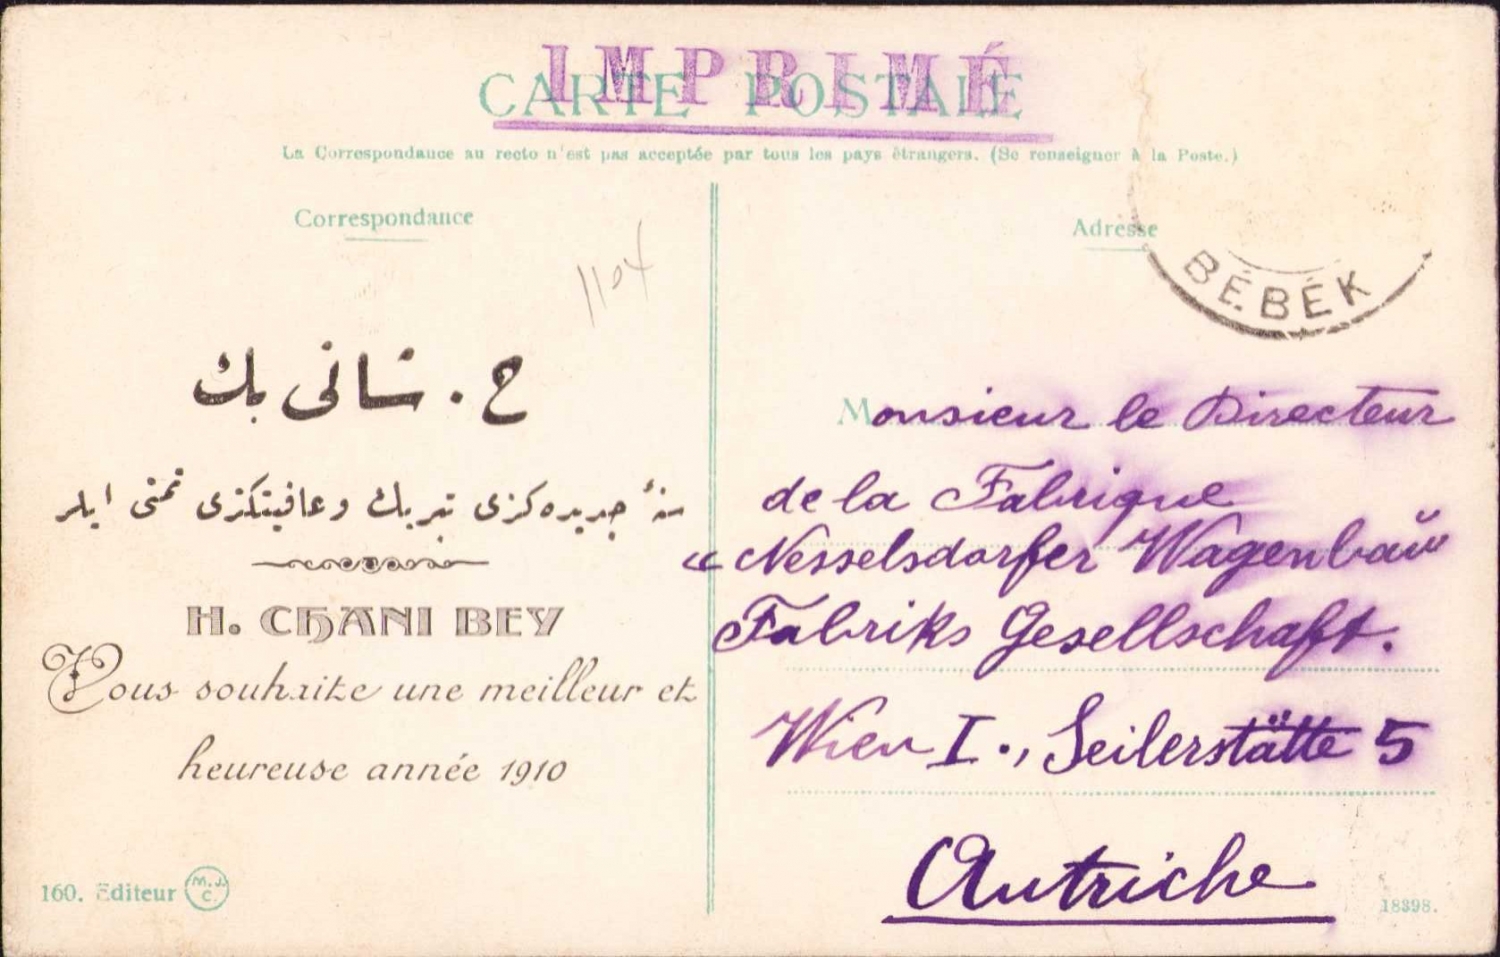 IMPRIMÉ
CARTE POSTALE
La Correspondance au recto n'est pas acceptée par tous les pays étrangers. (Se renseigner à la Poste.)
Correspondance
1104
ح. شانى بك
سنهٔ جديده كزى تبريك و عافيتكزى تمنى ايلر
H. CHANI BEY
Vous souhaite une meilleur et
heureuse année 1910
160. Editeur M.J.C.
Adresse
BÉBÉK
Monsieur le Directeur
de la Fabrique
"Nesselsdorfer Wagenbaŭ"
Fabriks Gesellschaft.
Wien I., Seilerstätte 5
Autriche
18398.